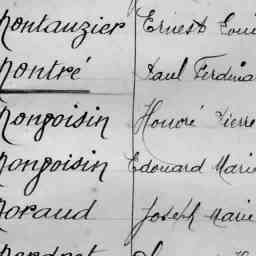 Montauzier Ernest Loui
Montré Paul Ferdina
Mongoisin Honoré Pierre
Mongoisin Edouard Marie
Moraud Joseph Marie